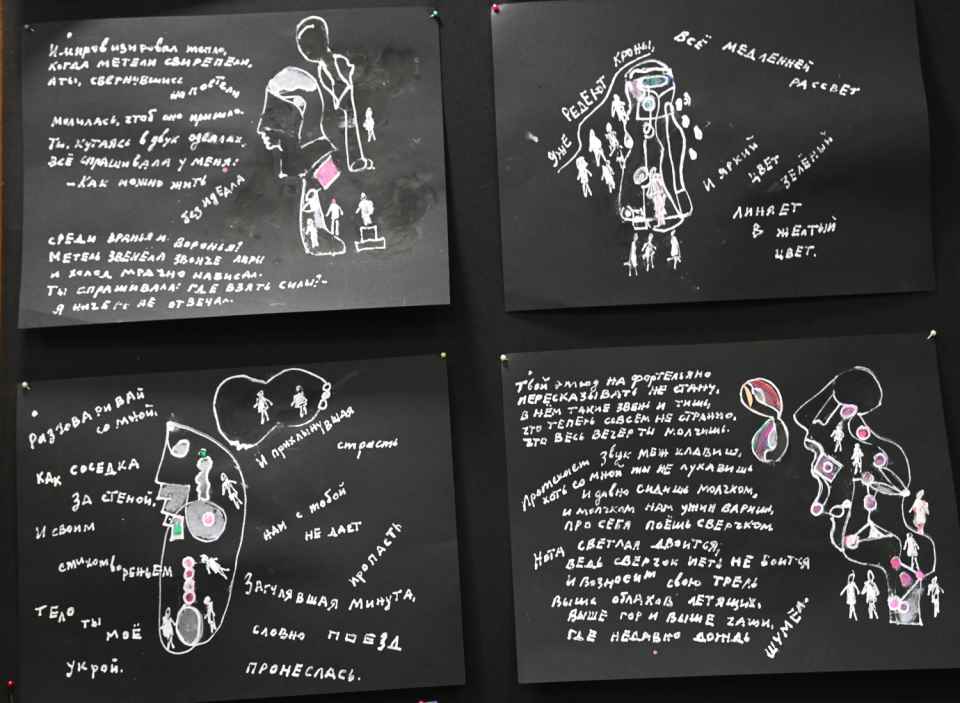 Импровизировал тепло,
когда метели свирепели,
а ты, свернувшись
на постели
молилась, чтоб оно пришло.
Ты, кутаясь в двух одеялах,
всё спрашивала у меня:
– Как можно жить
без идеала
среди вранья и воронья?
Метель звенела звонче лиры
и холод мрачно нависал.
Ты спрашивала: где взять силы? –
я ничего не отвечал.
Уже редеют кроны,
всё медленней
рассвет
и яркий
цвет
зелёный
линяет
в жёлтый
цвет.
Разговаривай
со мной,
как соседка
за стеной.
И своим
стихотвореньем
тело
ты
моё
укрой.
И прихлынувшая
страсть
нам с тобой
не даёт
пропасть
Загулявшая минута,
словно поезд
пронеслась.
Твой этюд на фортепьяно
пересказывать не стану,
в нём такие звень и тишь,
что теперь совсем не странно,
что весь вечер ты молчишь.
Протекает звук меж клавиш,
хоть со мной ты не лукавишь
и давно сидишь молчком,
и молчком нам ужин варишь,
про себя поёшь сверчком
Нота светлая двоится,
ведь сверчок петь не боится
и возносит свою трель
выше облаков летящих,
выше гор и выше чащи,
где недавно дождь
шумел.